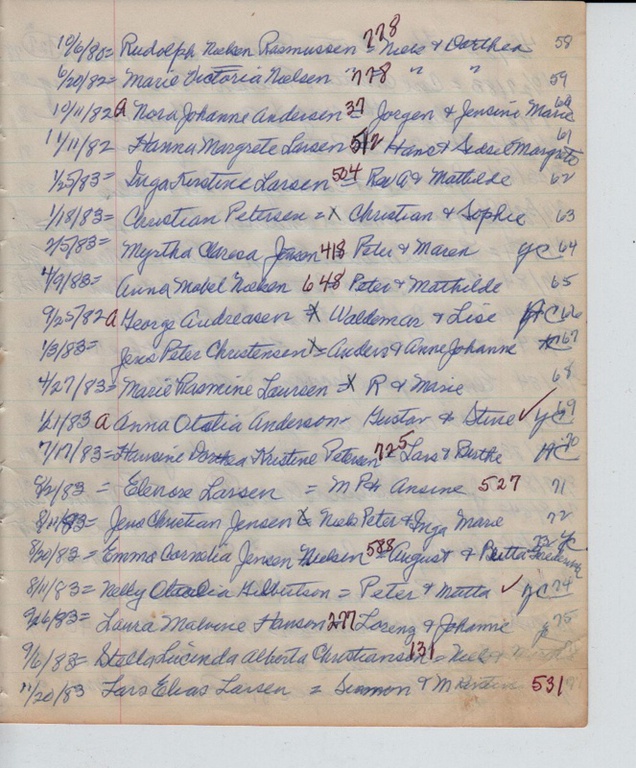 10/6/80 = Rudolph Nielsen Rasmussen = 778 Niels & Dorthea 58
6/20/82 = Marie Victoria Nielsen " 778 " " 59
10/11/82 A Nora Johanne Andersen 37 = Joergen & Jensine Marie 60
11/11/82 Hanna Margrete Larsen 512 Hans & Sidsel Margrete 61
1/25/83 = Inga Kirstine Larsen 504 = Rev A & Mathilde 62
1/18/83 = Christian Petersen = X Christian & Sophie 63
2/5/83 = Myrtha Claresa Jenson 418 Peter & Maren YC 64
4/9/83 = Anna Mabel Nielsen 648 Peter & Mathilde 65
9/25/82 A George Andreasen X Waldemar & Lise AC 66
1/3/83 = Jens Peter Christensen X = Anders & Anne Johanne 67
4/27/83 = Marie Rasmine Laursen = X R & Marie 68
1/21/83 A Anna Otalia Anderson - Gustav & Stine ✓ YC 69
7/17/83 = Hansine Dorthea Kristine Petersen 725 = Lars & Berthe AC 70
8/2/83 = Elenore Larsen = M P & Ansine 527 71
8/11/83 = Jens Christian Jensen X = Niels Peter & Inga Marie 72
8/20/83 = Emma Cornelia Jensen Nielsen 588 = August & YC
8/11/83 = Nelly Otalia Gilbertson = Peter & Matta ✓ YC 74
9/26/83 = Laura Malvine Hanson 277 Lorenz & Johanne 75
9/6/83 = Stella Lucinda Alberta Christiansen 131 = Niels &
11/20/83 Lars Elias Larsen = Simmon & M 531